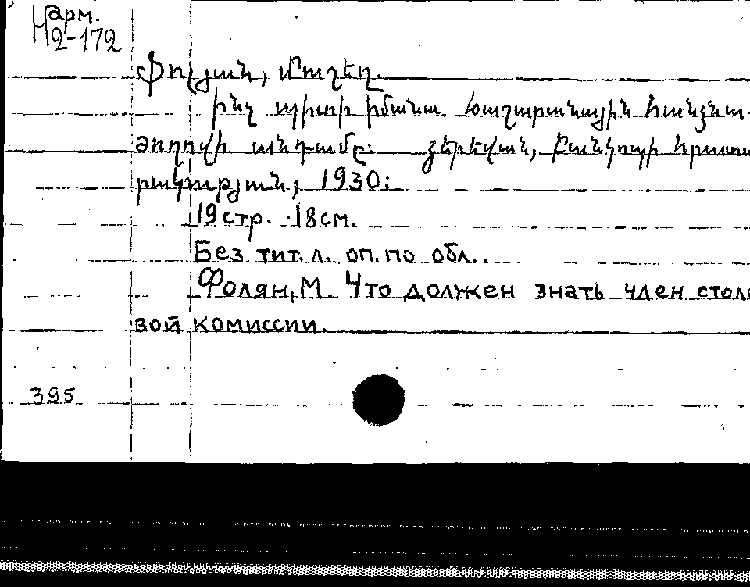 Нарм.
2-172
Փոլյան, Մաղեղ.
ինչ պիտի իմանա ճաշարանային հանձնա
ժողովի անդամը: Յերեվան, Բանկոոպի հրատա
րակություն, 1930:
19 стр. 18 см.
Без тит. л. оп. по обл..
Фолян, М. Что должен знать член столо
вой комиссии.
395